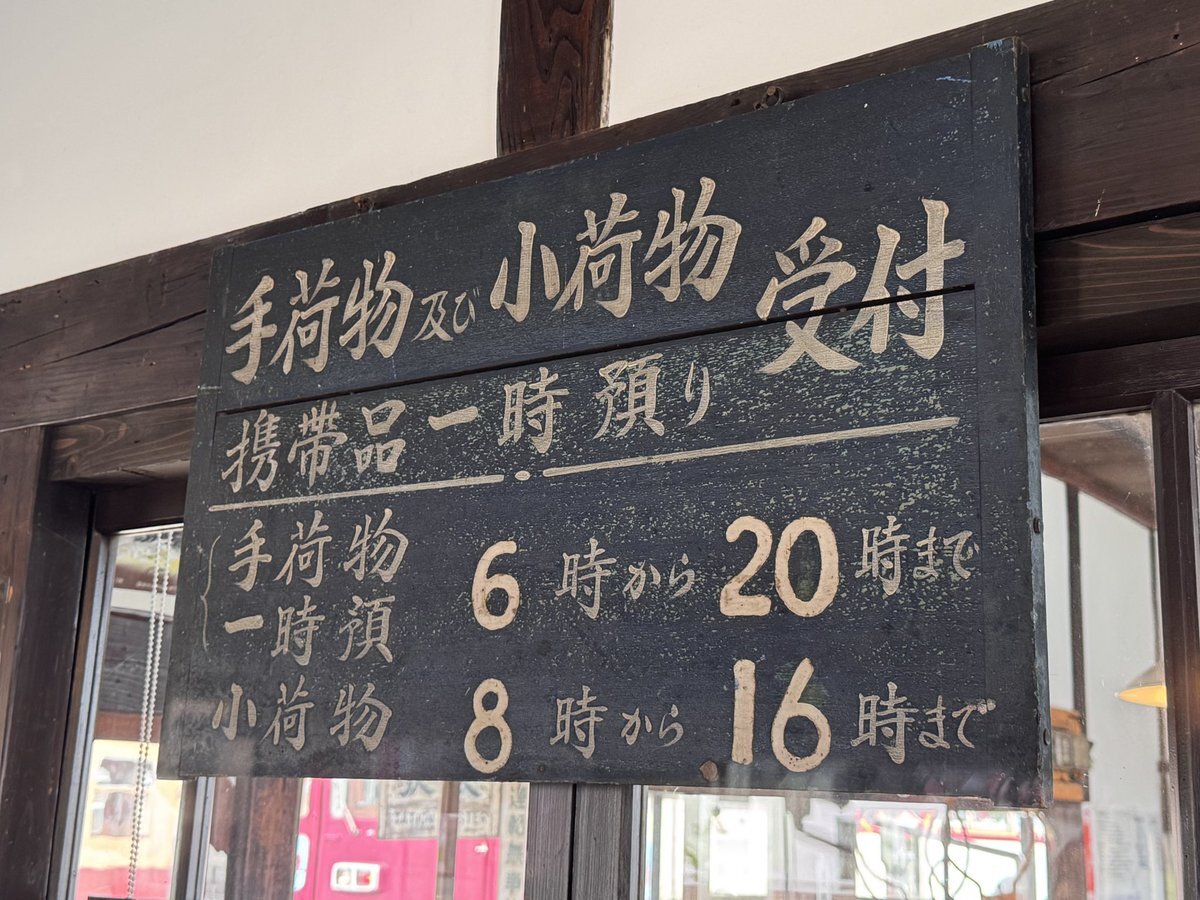 手荷物及び小荷物受付
携帯品一時預り
手荷物
一時預 6時から20時まで
小荷物 8時から16時まで